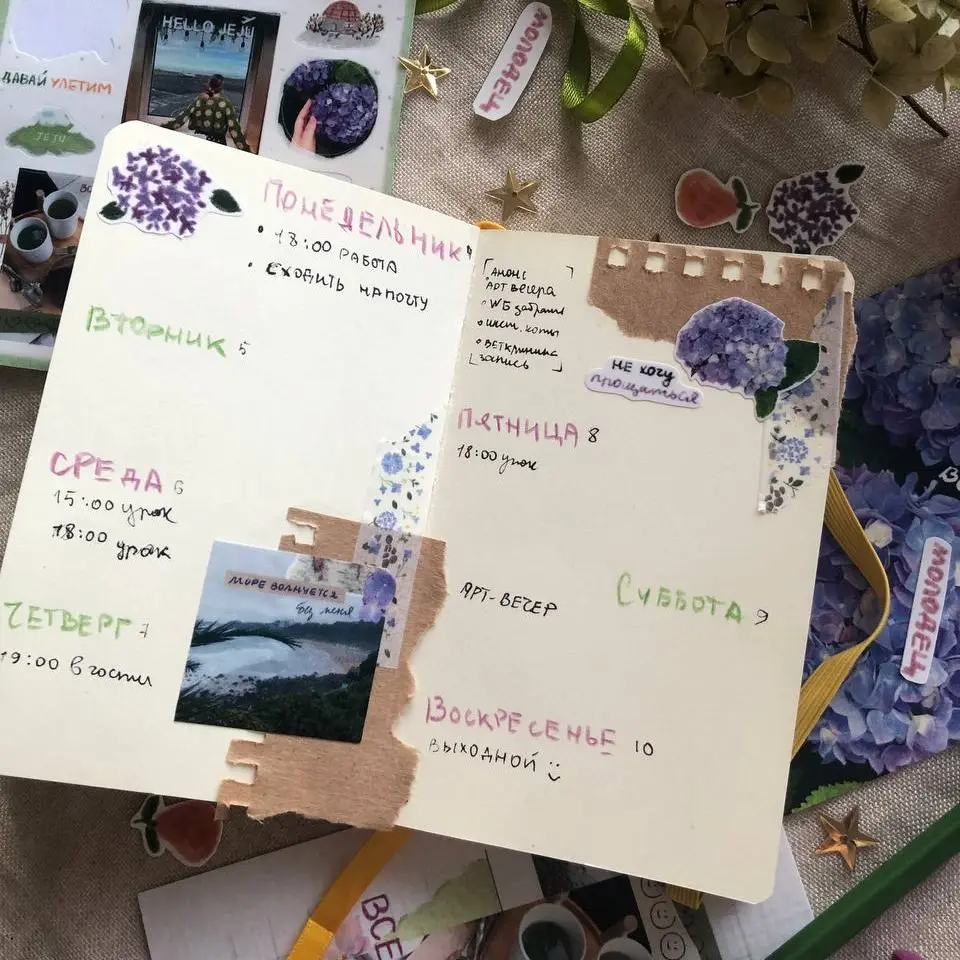 HELLO JEJU
ДАВАЙ УЛЕТИМ
JEJU
МОЛОДЕЦ
ПОНЕДЕЛЬНИК 4
• 18:00 РАБОТА
• СХОДИТЬ НА ПОЧТУ
ВТОРНИК 5
СРЕДА 6
15:00 урок
18:00 урок
ЧЕТВЕРГ 7
19:00 в гости
МОРЕ ВОЛНУЕТСЯ
без меня
АНОНС
АРТ вечера
• WB забрать
• ВЕТКЛИНИКА
ЗАПИСЬ
НЕ ХОЧУ
прощаться
ПЯТНИЦА 8
18:00 урок
СУББОТА 9
АРТ-ВЕЧЕР
ВОСКРЕСЕНЬЕ 10
ВЫХОДНОЙ
МОЛОДЕЦ
ВСЕ